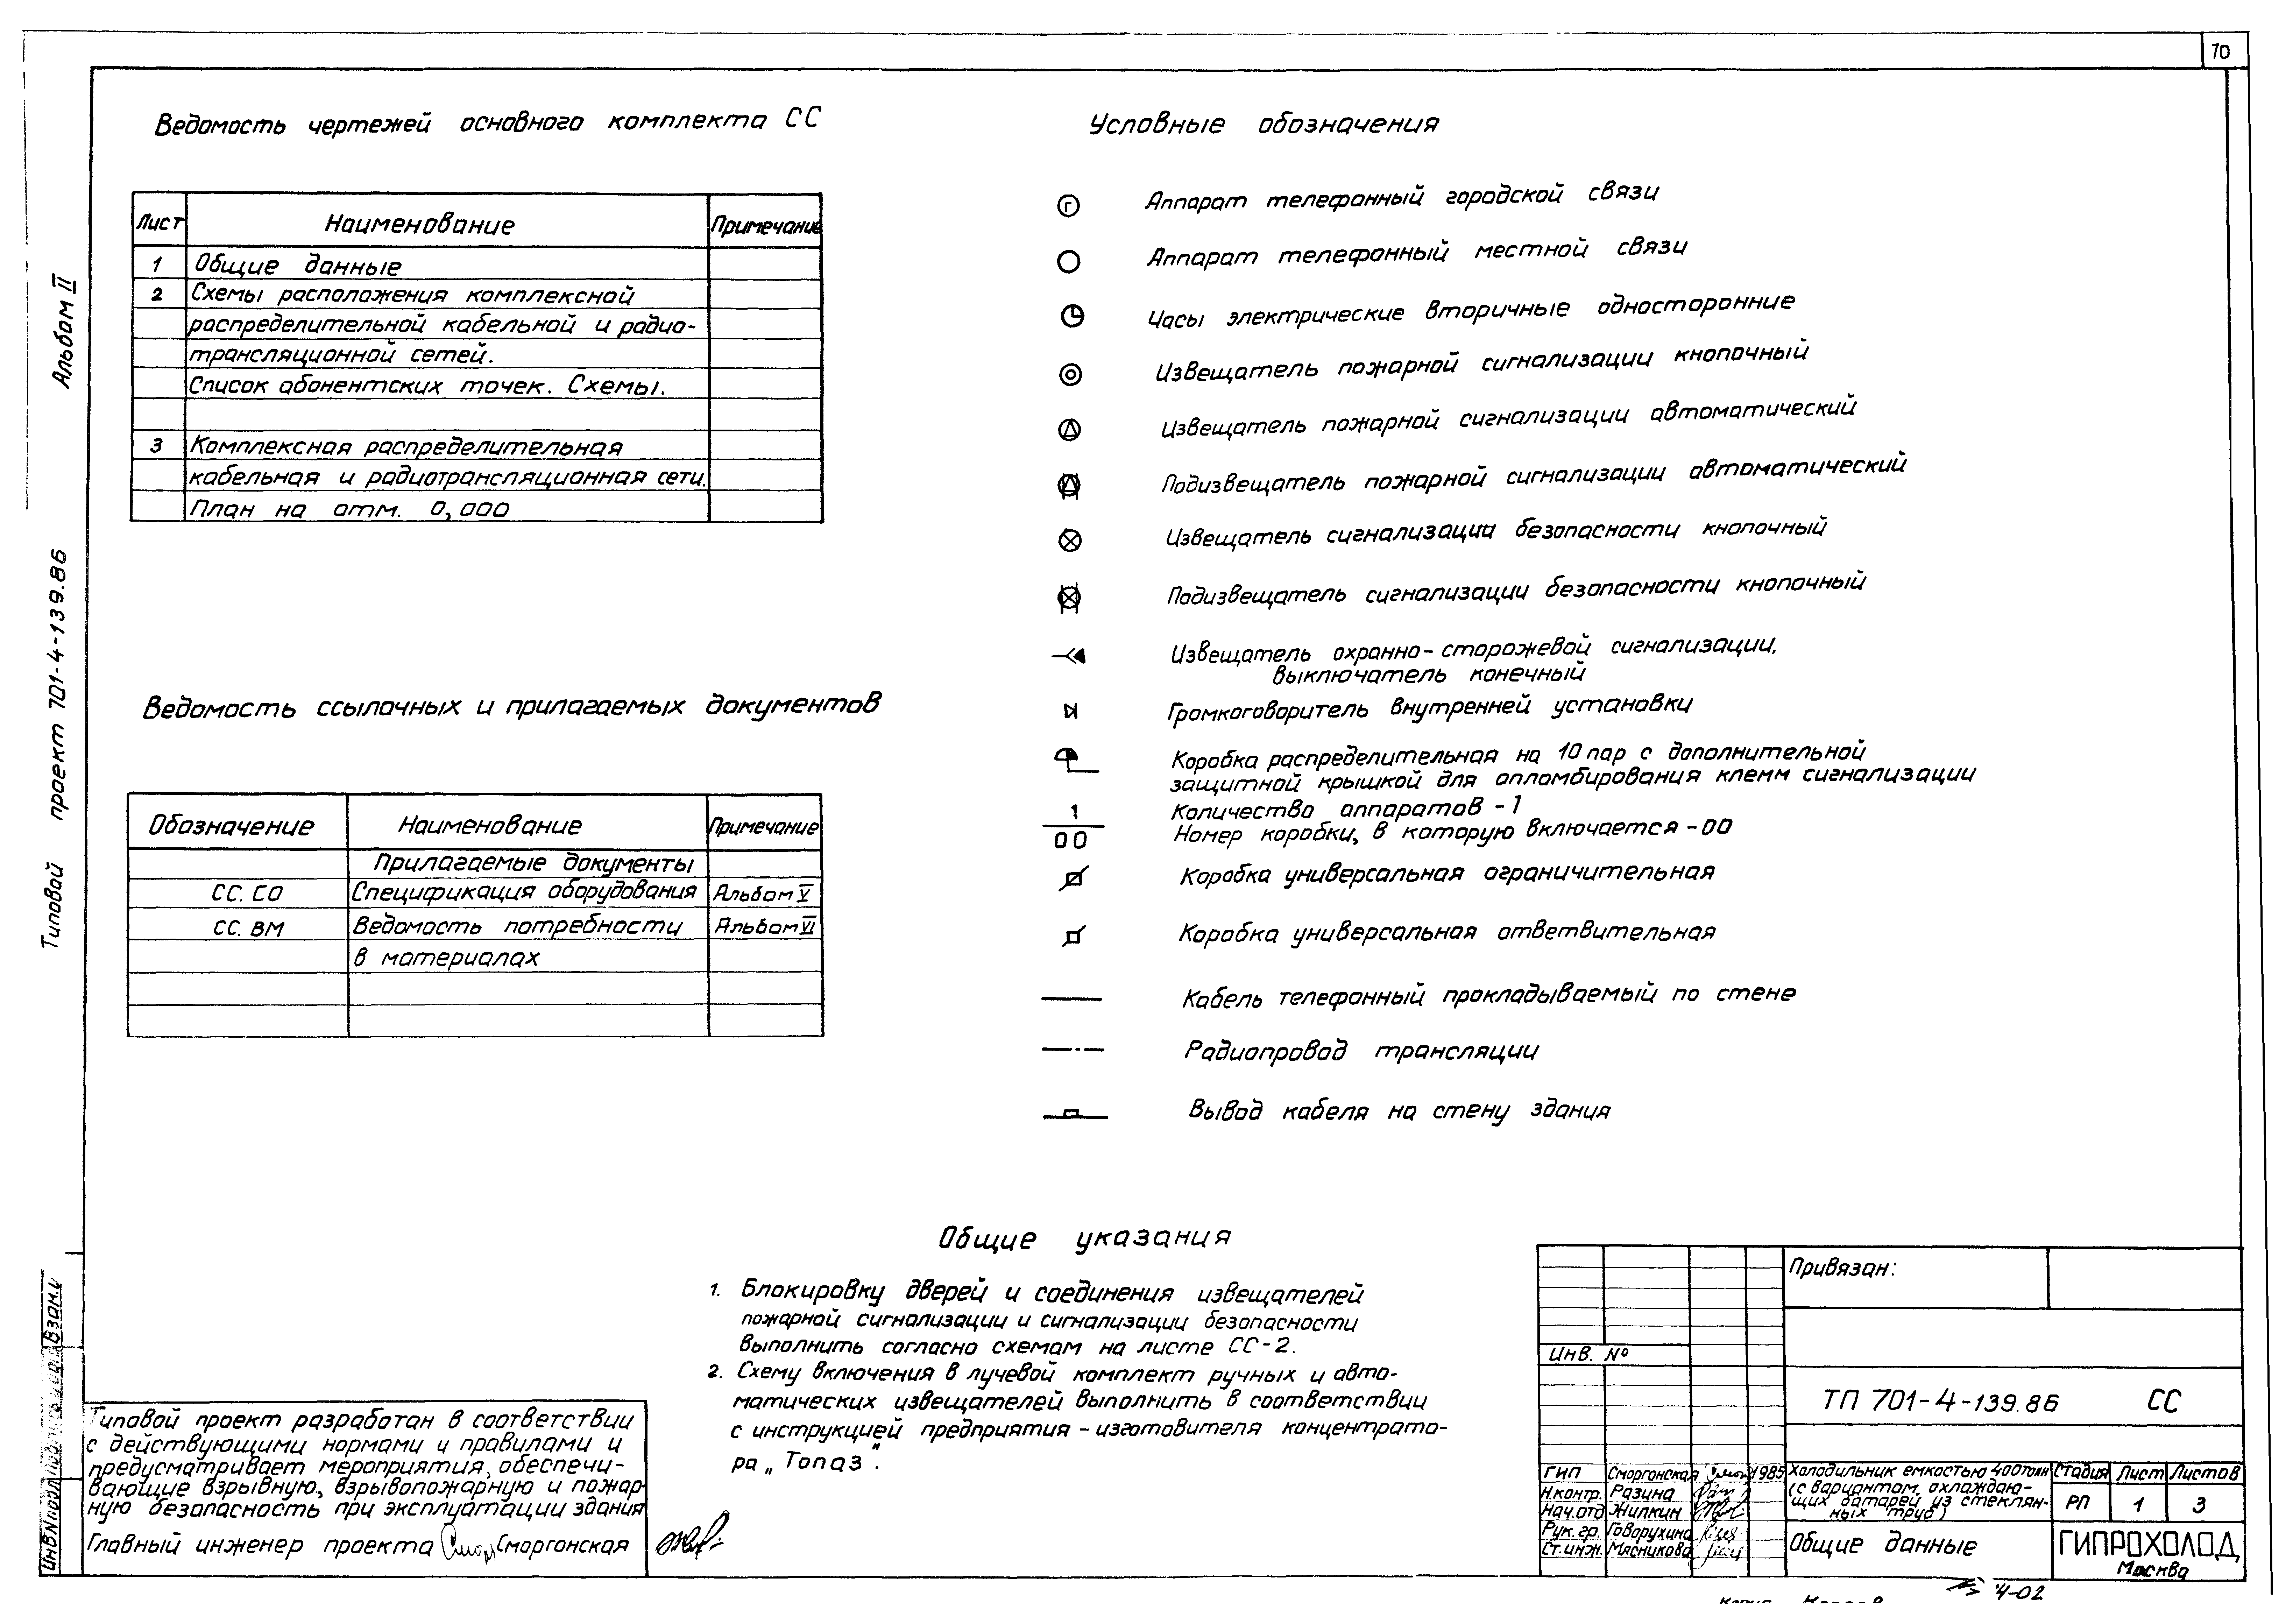 70
Ведомость чертежей основного комплекта СС
Лист Наименование Примечание
1 Общие данные
2 Схемы расположения комплексной
распределительной кабельной и радио-
трансляционной сетей.
Список абонентских точек. Схемы.
3 Комплексная распределительная
кабельная и радиотрансляционная сети.
План на отм. 0,000
Ведомость ссылочных и прилагаемых документов
Обозначение Наименование Примечание
Прилагаемые документы
СС. СО Спецификация оборудования Альбом V
СС. ВМ Ведомость потребности Альбом VI
в материалах
Условные обозначения
Г Аппарат телефонный городской связи
Аппарат телефонный местной связи
Часы электрические вторичные односторонние
Извещатель пожарной сигнализации кнопочный
Извещатель пожарной сигнализации автоматический
Подизвещатель пожарной сигнализации автоматический
Извещатель сигнализации безопасности кнопочный
Подизвещатель сигнализации безопасности кнопочный
Извещатель охранно-сторожевой сигнализации,
выключатель конечный
Громкоговоритель внутренней установки
Коробка распределительная на 10 пар с дополнительной
защитной крышкой для опломбирования клемм сигнализации
1 Количество аппаратов - 1
00 Номер коробки, в которую включается - 00
Коробка универсальная ограничительная
Коробка универсальная ответвительная
Кабель телефонный прокладываемый по стене
Радиопровод трансляции
Вывод кабеля на стену здания
Общие указания
1. Блокировку дверей и соединения извещателей
пожарной сигнализации и сигнализации безопасности
выполнить согласно схемам на листе СС-2.
2. Схему включения в лучевой комплект ручных и авто-
матических извещателей выполнить в соответствии
с инструкцией предприятия - изготовителя концентрато-
ра „Топаз".
Типовой проект разработан в соответствии
с действующими нормами и правилами и
предусматривает мероприятия, обеспечи-
вающие взрывную, взрывопожарную и пожар-
ную безопасность при эксплуатации здания
Главный инженер проекта Сморгонская
Альбом II
Типовой проект 701-4-139.86
Взам.и
Инв№подл
Привязан:
Инв. №
ТП 701-4-139.86 СС
ГИП Сморгонская 1985
Н.контр. Разина
Нач.отд Жилкин
Рук. гр. Говорухина
Ст.инж. Мясникова
Холодильник емкостью 400тонн
(с вариантом охлаждаю-
щих батарей из стеклян-
ных труб)
Стадия Лист Листов
РП 1 3
Общие данные
ГИПРОХОЛОД
Москва
4-02